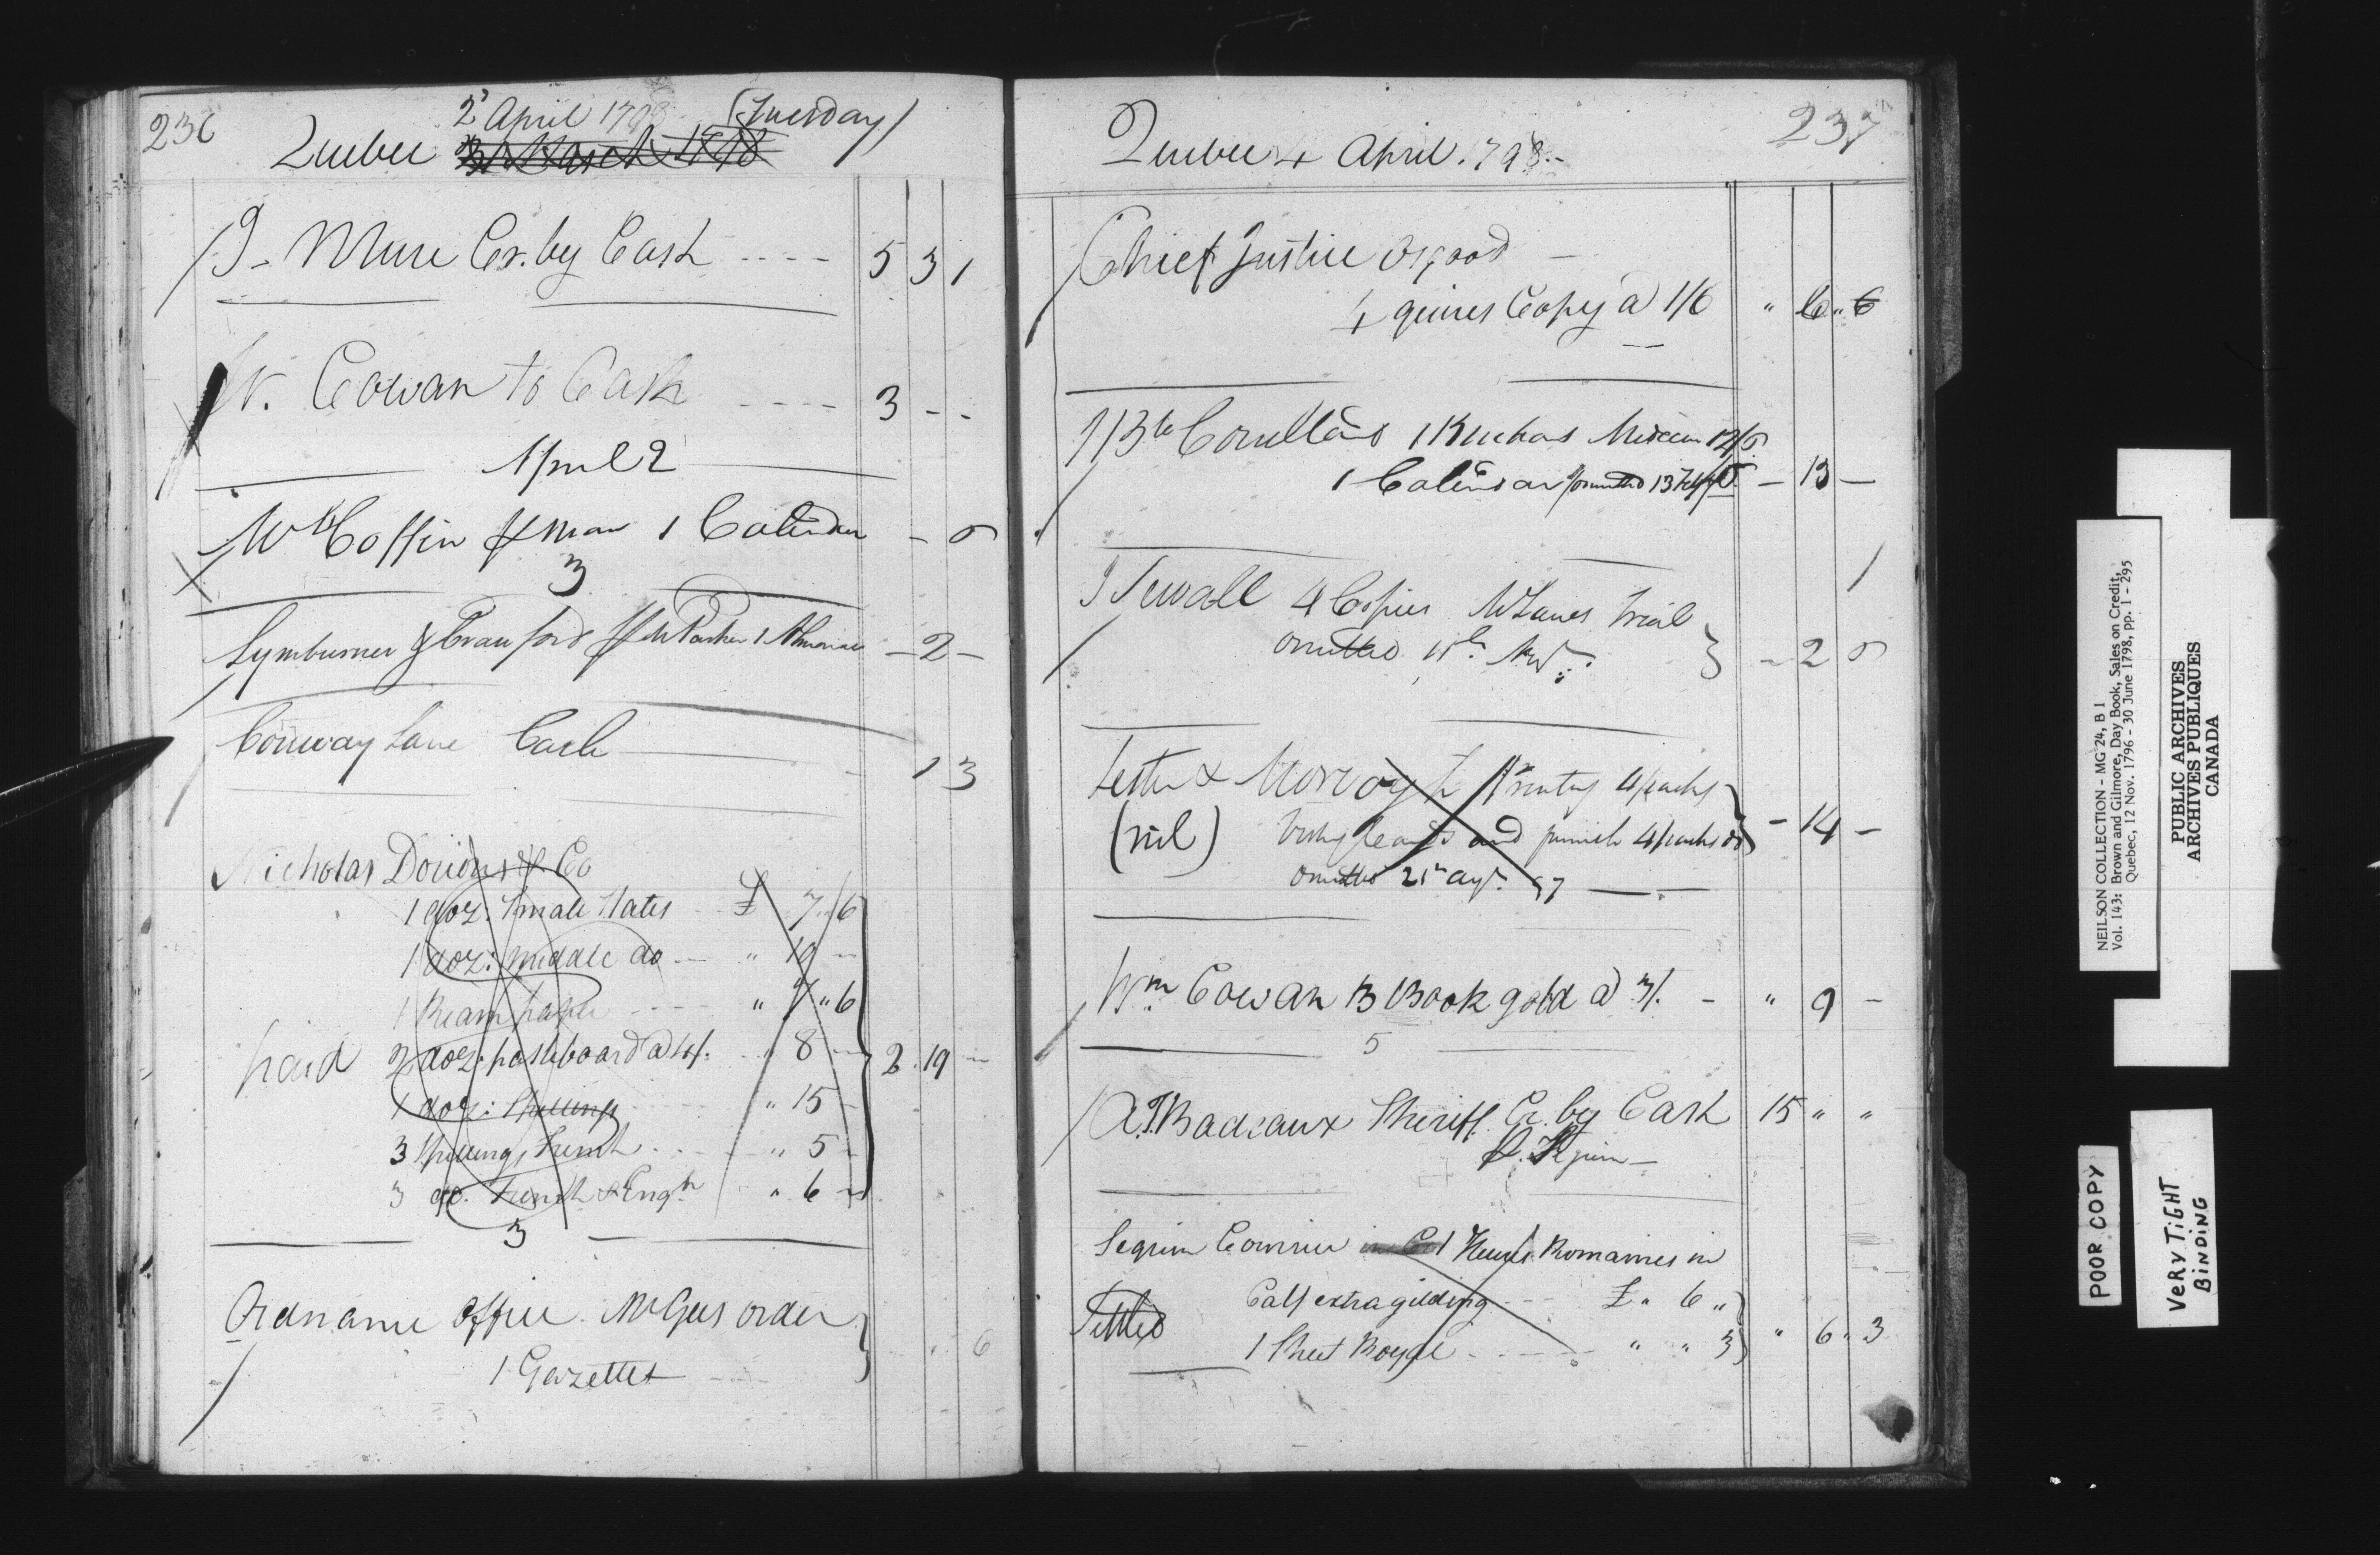 236
2 April 1798 (Tuesday)
Quebec 31 March 1798
J. Mure Cr. by Cash ---- 5 3 1
W. Cowan to Cash ---- 3 - -
April 2
Wm Coffin 1 Calendar - 6
3
Lymburner & Crawford Parker 1 Almanac - 2 -
Conway Lane Cash 1 3
Nicholas Dorions & Co
1 doz: Small Slates £ 7 " 6
1 doz: middle do — " 10 -
1 Ream paper ---- " 7 " 6
paid 2 doz: pasteboard a 4/. 8 - 2 . 19 -
1 doz: Spellings " 15 -
3 Spellings french " 5 -
3 do. french & Engh " 6 -
3
Ordnance Office. McGees order
1 Gazettes 6
237
Quebec 4 April 1798 -
Chief Justice Osgood —
4 quires Copy a 1/6 " 6 " 6
1 Buchans Medicine 12/6
1 Calendar omitted 13 Feby - 13 -
J Sewall 4 Copies McLanes Trial
omitted - 2 6
Lester & Morrogh Printing 4 packs
(nil) and furnish 4 packs do - 14 -
omitted 21 97
Wm Cowan 3 Book gold a 3/. - " 9 -
5
A. T. Badeaux Sheriff. Cr. by Cash 15 " "
Seguin Courier 1 Heures Romaines in
Calf extra gilding £ " 6 "
Settled
1 Sheet Royal " " 3 " 6 " 3
NEILSON COLLECTION - MG 24, B 1
Vol. 143: Brown and Gilmore, Day Book, Sales on Credit,
Quebec, 12 Nov. 1796 - 30 June 1798, pp. 1 - 295
PUBLIC ARCHIVES
ARCHIVES PUBLIQUES
CANADA
POOR COPY
VERY TIGHT
BINDING